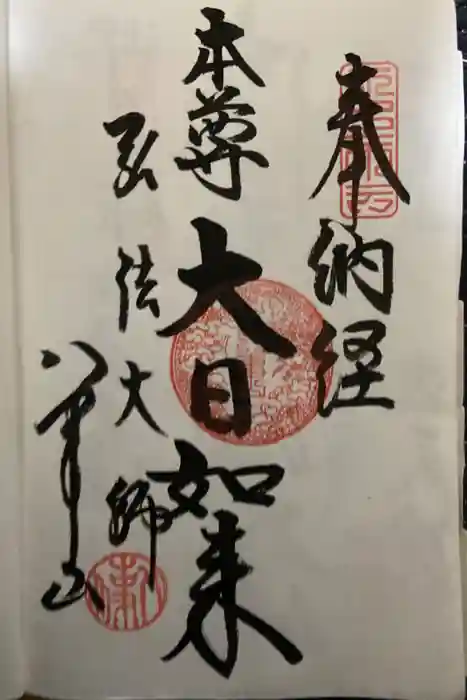 奉納経
本尊大日如来
弘法大師